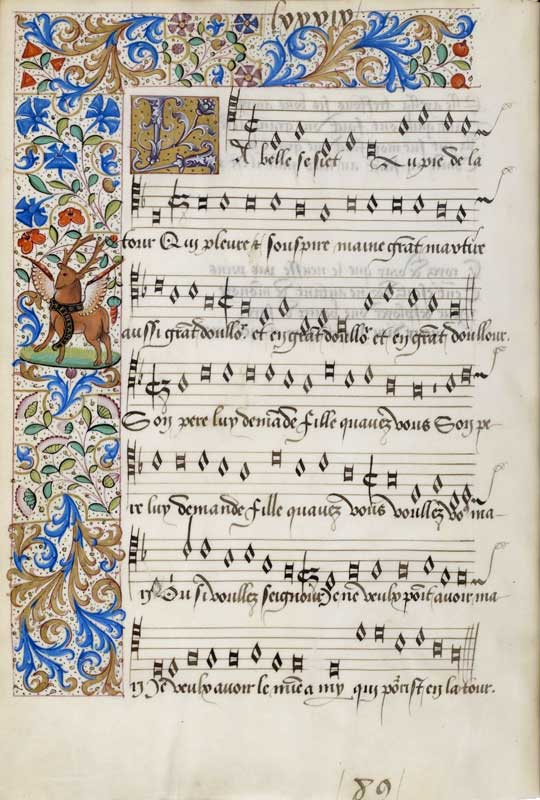 lxxxiv
La belle se siet Au pie de la
tour Qui pleure & souspire maine grāt martire
aussi grāt doullor et en grāt doullor et en grāt doullour.
Son pere luy demāde fille quauez vous Son pe-
re luy demande fille quauez vous voullez vos ma-
ry Ou si voullez seignour Je ne veulx poīt avoir ma
ry Je veulx avoir le mie amy qui porist en la tour.
89